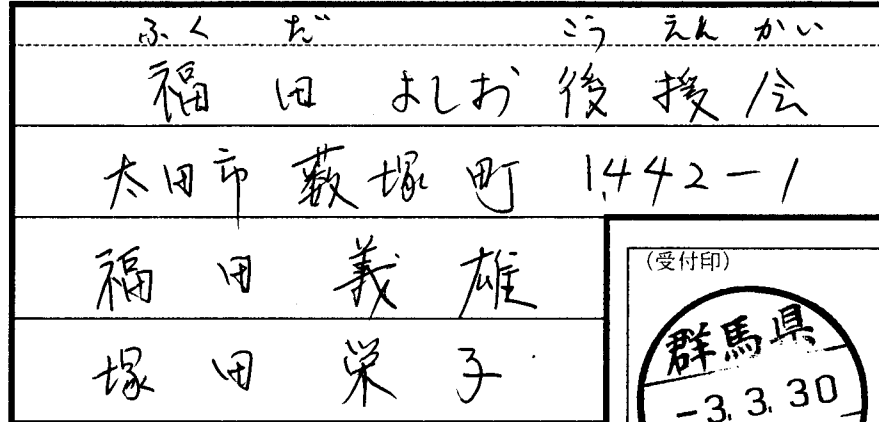 ふくだ こうえんかい
福田よしお後援会
太田市藪塚町1442-1
福田義雄
塚田栄子
(受付印)
群馬県
-3.3.30